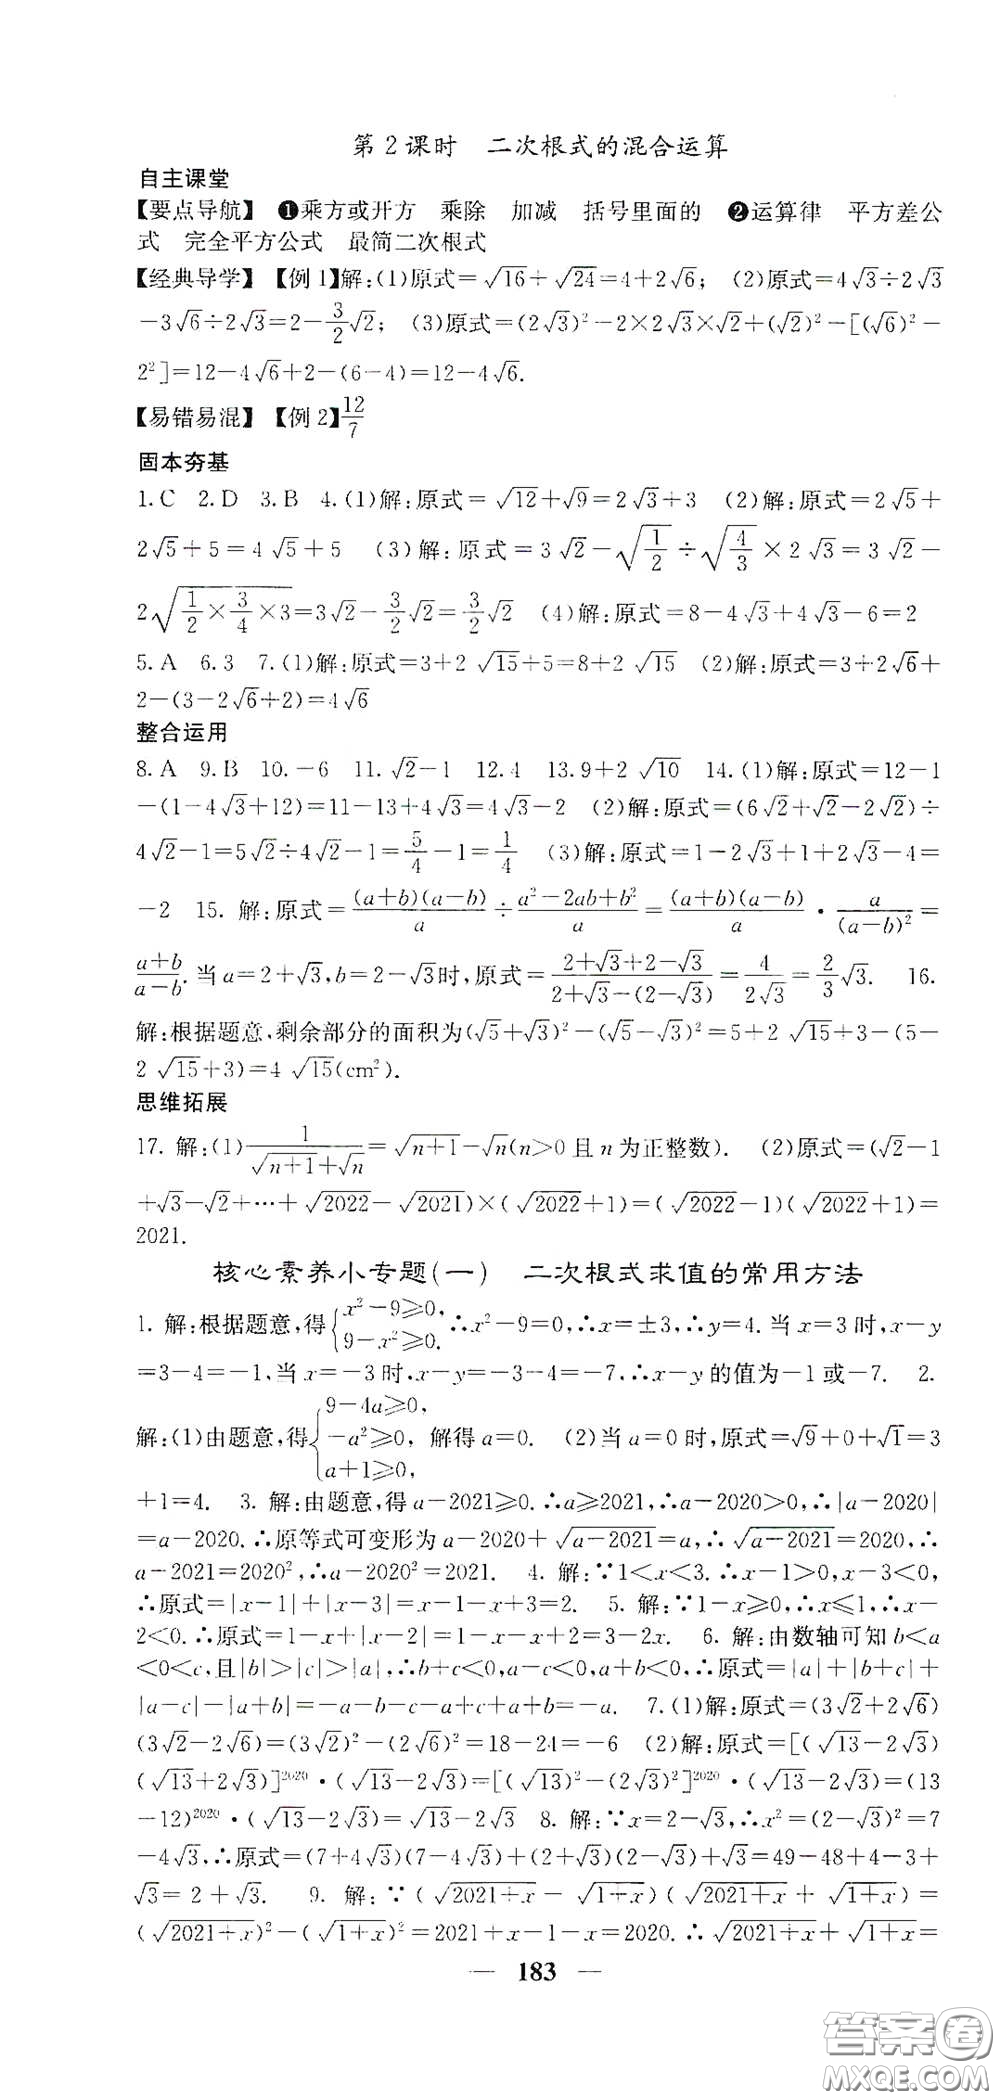 第2课时 二次根式的混合运算
自主课堂
【要点导航】 ❶乘方或开方 乘除 加减 括号里面的 ❷运算律 平方差公
式 完全平方公式 最简二次根式
【经典导学】【例1】解:(1)原式=√16+√24=4+2√6; (2)原式=4√3÷2√3
-3√6÷2√3=2-3/2√2; (3)原式=(2√3)²-2×2√3×√2+(√2)²-[(√6)²-
2²]=12-4√6+2-(6-4)=12-4√6.
【易错易混】【例2】12/7
固本夯基
1.C 2.D 3.B 4.(1)解:原式=√12+√9=2√3+3 (2)解:原式=2√5+
2√5+5=4√5+5 (3)解:原式=3√2-√(1/2)÷√(4/3)×2√3=3√2-
2√(1/2×3/4×3)=3√2-3/2√2=3/2√2 (4)解:原式=8-4√3+4√3-6=2
5.A 6.3 7.(1)解:原式=3+2√15+5=8+2√15 (2)解:原式=3+2√6+
2-(3-2√6+2)=4√6
整合运用
8.A 9.B 10.-6 11.√2-1 12.4 13.9+2√10 14.(1)解:原式=12-1
-(1-4√3+12)=11-13+4√3=4√3-2 (2)解:原式=(6√2+√2-2√2)÷
4√2-1=5√2÷4√2-1=5/4-1=1/4 (3)解:原式=1-2√3+1+2√3-4=
-2 15. 解:原式=(a+b)(a-b)/a÷(a²-2ab+b²)/a=(a+b)(a-b)/a·a/(a-b)²=
(a+b)/(a-b). 当a=2+√3,b=2-√3时,原式=(2+√3+2-√3)/(2+√3-(2-√3))=4/(2√3)=2/3√3. 16.
解:根据题意,剩余部分的面积为(√5+√3)²-(√5-√3)²=5+2√15+3-(5-
2√15+3)=4√15(cm²).
思维拓展
17. 解:(1)1/(√(n+1)+√n)=√(n+1)-√n(n>0且n为正整数). (2)原式=(√2-1
+√3-√2+…+√2022-√2021)×(√2022+1)=(√2022-1)(√2022+1)=
2021.
核心素养小专题(一) 二次根式求值的常用方法
1. 解:根据题意,得{x²-9≥0, 9-x²≥0. ∴x²-9=0,∴x=±3,∴y=4. 当x=3时,x-y
=3-4=-1,当x=-3时,x-y=-3-4=-7,∴x-y的值为-1或-7. 2.
解:(1)由题意,得{9-4a≥0, -a²≥0, a+1≥0, 解得a=0. (2)当a=0时,原式=√9+0+√1=3
+1=4. 3. 解:由题意,得a-2021≥0.∴a≥2021,∴a-2020>0,∴|a-2020|
=a-2020.∴原等式可变形为a-2020+√(a-2021)=a,∴√(a-2021)=2020,∴
a-2021=2020²,∴a-2020²=2021. 4. 解:∵1<x<3.∴x-1>0,x-3<0,
∴原式=|x-1|+|x-3|=x-1-x+3=2. 5. 解:∵1-x≥0,∴x≤1,∴x-
2<0.∴原式=1-x+|x-2|=1-x-x+2=3-2x. 6. 解:由数轴可知b<a
<0<c,且|b|>|c|>|a|,∴b+c<0,a-c<0,a+b<0,∴原式=|a|+|b+c|+
|a-c|-|a+b|=-a-b-c-a+c+a+b=-a. 7.(1)解:原式=(3√2+2√6)
(3√2-2√6)=(3√2)²-(2√6)²=18-24=-6 (2)解:原式=[(√13-2√3)
(√13+2√3)]²⁰²⁰·(√13-2√3)=[(√13)²-(2√3)²]²⁰²⁰·(√13-2√3)=(13
-12)²⁰²⁰·(√13-2√3)=√13-2√3 8. 解:∵x=2-√3,∴x²=(2-√3)²=7
-4√3,∴原式=(7+4√3)(7-4√3)+(2+√3)(2-√3)+√3=49-48+4-3+
√3=2+√3. 9. 解:∵(√(2021+x)-√(1+x))(√(2021+x)+√(1+x))=
(√(2021+x))²-(√(1+x))²=2021+x-1-x=2020.∴√(2021+x)+√(1+x)=
— 183 —
答案圈
MXQE.COM